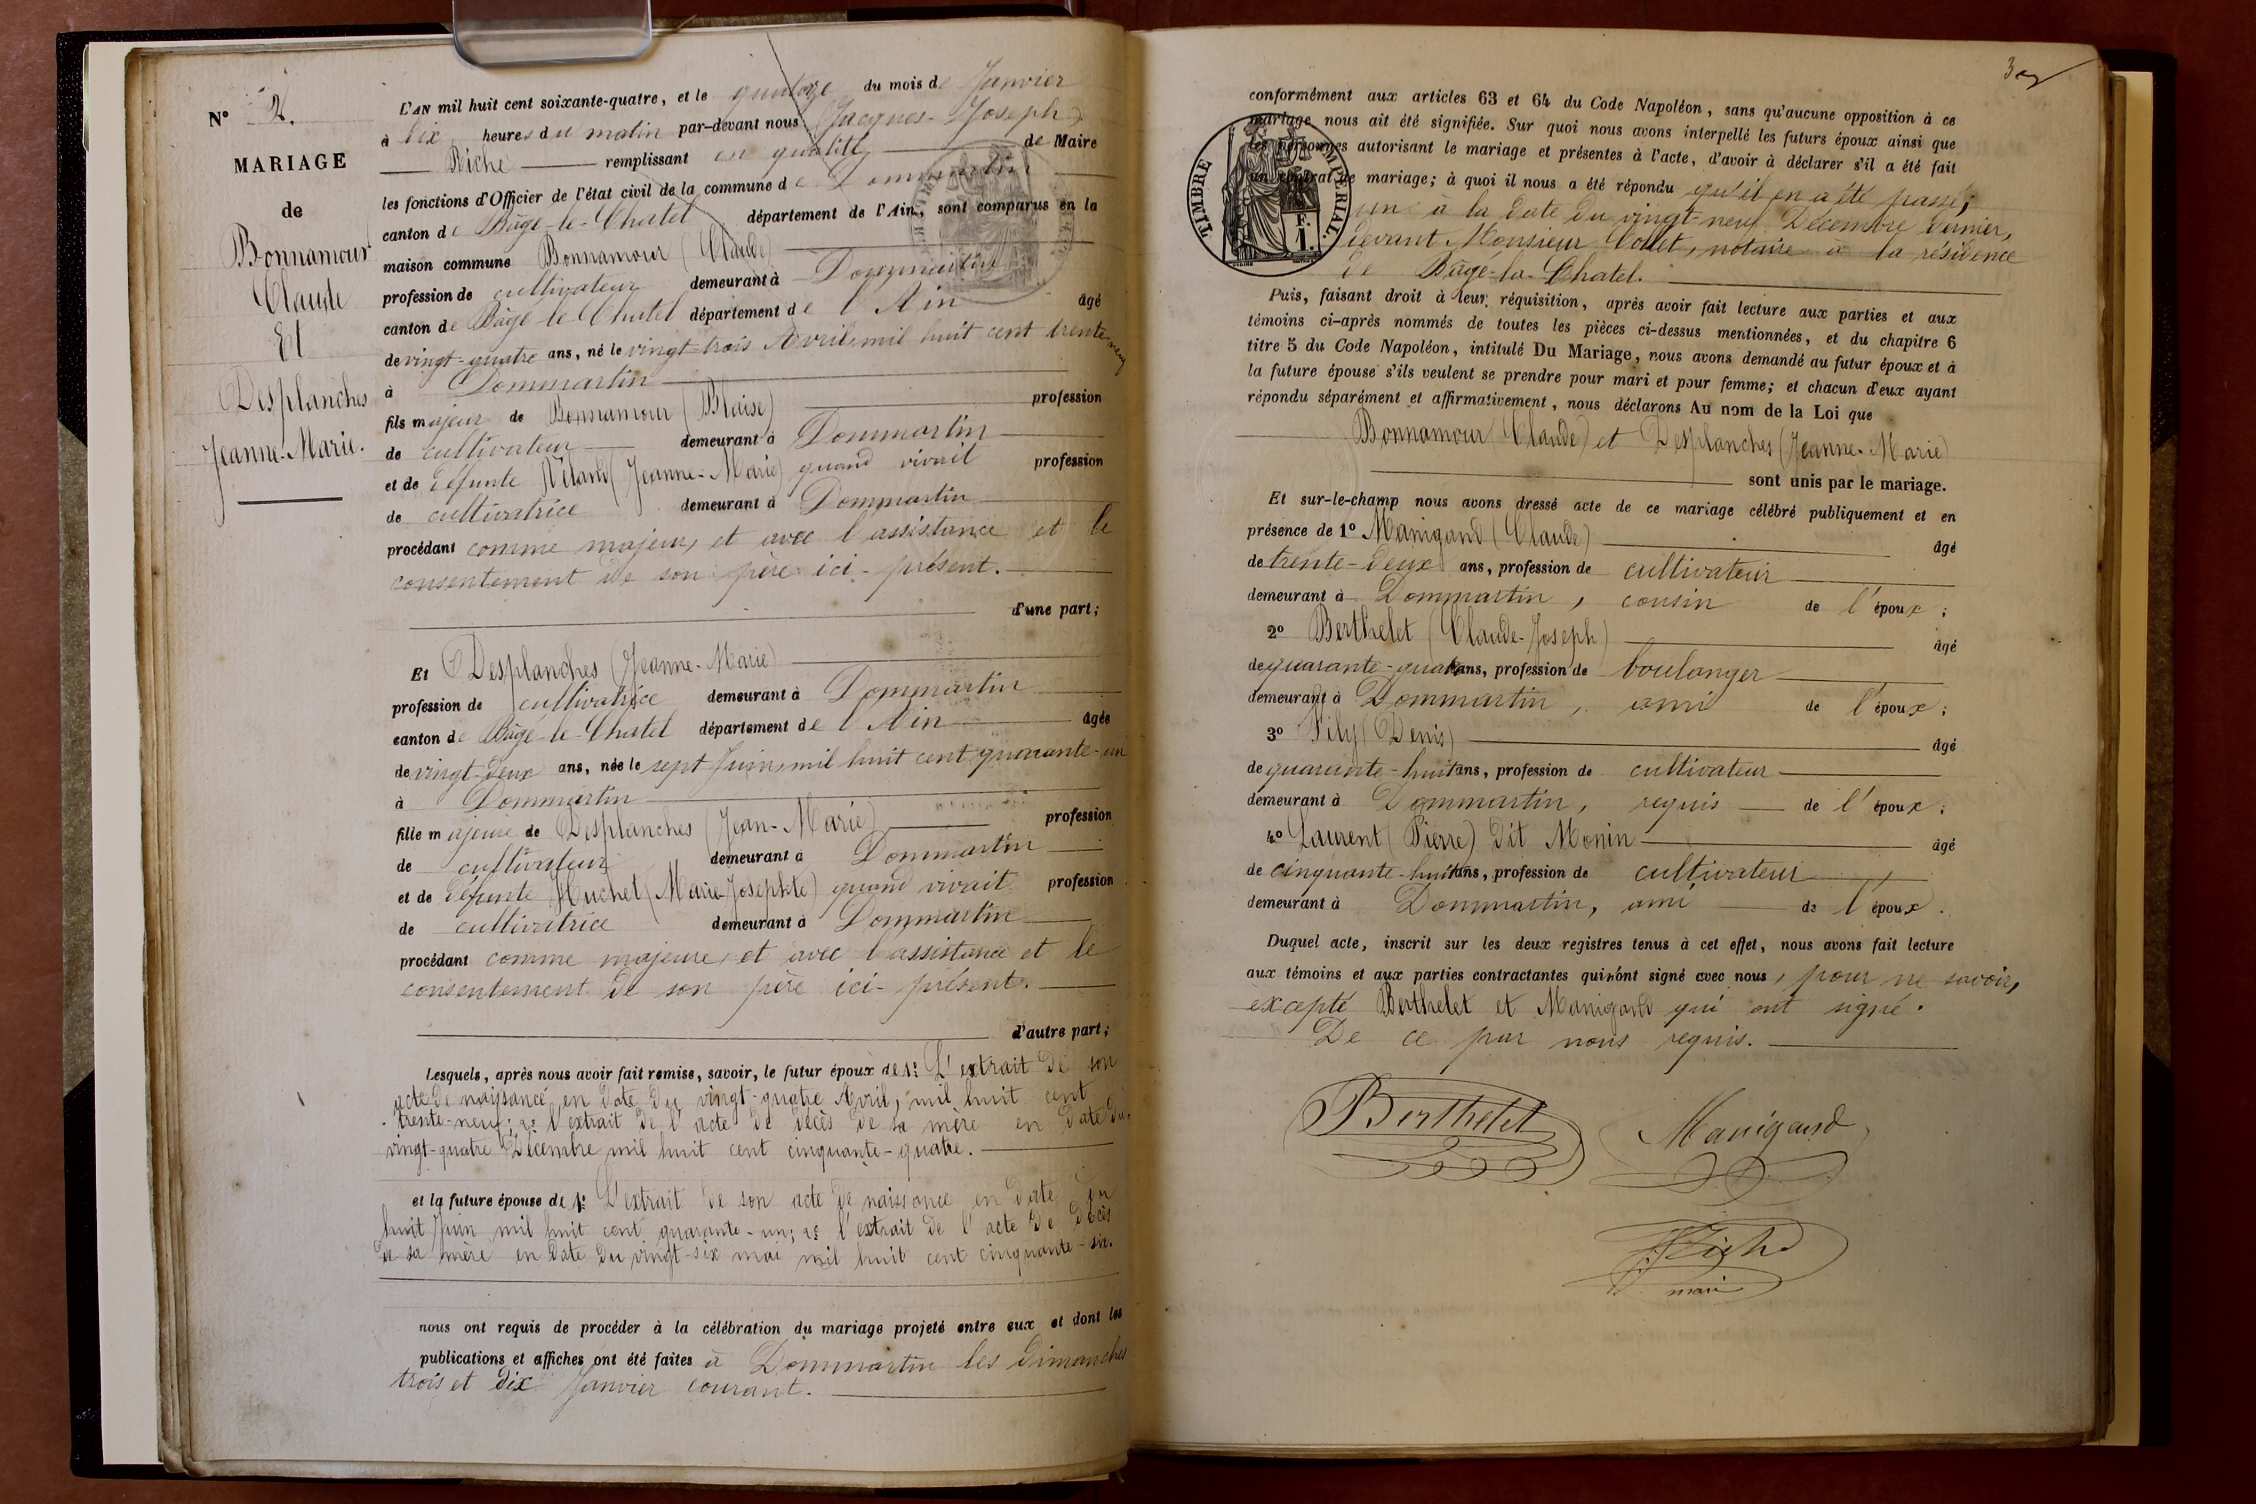 N° 2.
MARIAGE
de
Bonnamour
Claude
Et
Desplanches
Jeanne-Marie.
L'AN mil huit cent soixante-quatre, et le quatorze du mois de Janvier
à dix heures du matin par-devant nous (Jacques-Joseph)
Riche remplissant en qualité de Maire
les fonctions d'Officier de l'état civil de la commune de Dommartin
canton de Bâgé-le-Chatel département de l'Ain, sont comparus en la
maison commune Bonnamour (Claude)
profession de cultivateur demeurant à Dommartin
canton de Bâgé-le-Chatel département de l'Ain âgé
de vingt-quatre ans, né le vingt-trois Avril mil huit cent trente neuf
à Dommartin
fils majeur de Bonnamour (Blaise) profession
de cultivateur demeurant à Dommartin
et de défunte (Jeanne-Marie) quand vivait profession
de cultivatrice demeurant à Dommartin
procédant comme majeur, et avec l'assistance et le
consentement de son père ici-présent.
d'une part;
Et Desplanches (Jeanne-Marie)
profession de cultivatrice demeurant à Dommartin
canton de Bâgé-le-Chatel département de l'Ain âgée
de vingt-deux ans, née le sept Juin, mil huit cent quarante-un
à Dommartin
fille majeure de Desplanches (Jean-Marie) profession
de cultivateur demeurant à Dommartin
et de défunte Huchet (Marie-Josephte) quand vivait profession
de cultivatrice demeurant à Dommartin
procédant comme majeure, et avec l'assistance et le
consentement de son père ici-présent.
d'autre part;
Lesquels, après nous avoir fait remise, savoir, le futur époux de 1° L'extrait de son
acte de naissance en date du vingt-quatre Avril, mil huit cent
trente-neuf; 2° l'extrait de l'acte de décès de sa mère en date du
vingt-quatre Décembre mil huit cent cinquante-quatre.
et la future épouse de 1° L'extrait de son acte de naissance en date du
huit Juin mil huit cent quarante-un; 2° l'extrait de l'acte de décès
de sa mère en date du vingt-six mai mil huit cent cinquante-six.
nous ont requis de procéder à la célébration du mariage projeté entre eux et dont les
publications et affiches ont été faites à Dommartin les dimanches
trois et dix Janvier courant.
3
conformément aux articles 63 et 64 du Code Napoléon, sans qu'aucune opposition à ce
mariage nous ait été signifiée. Sur quoi nous avons interpellé les futurs époux ainsi que
les personnes autorisant le mariage et présentes à l'acte, d'avoir à déclarer s'il a été fait
un contrat de mariage; à quoi il nous a été répondu qu'il en a été passé,
un à la date du vingt-neuf Décembre dernier,
devant Monsieur Collet, notaire à la résidence
de Bâgé-la-Chatel.
TIMBRE IMPERIAL.
F.
1.
Puis, faisant droit à leur réquisition, après avoir fait lecture aux parties et aux
témoins ci-après nommés de toutes les pièces ci-dessus mentionnées, et du chapitre 6
titre 5 du Code Napoléon, intitulé Du Mariage, nous avons demandé au futur époux et à
la future épouse s'ils veulent se prendre pour mari et pour femme; et chacun d'eux ayant
répondu séparément et affirmativement, nous déclarons Au nom de la Loi que
Bonnamour (Claude) et Desplanches (Jeanne-Marie)
sont unis par le mariage.
Et sur-le-champ nous avons dressé acte de ce mariage célébré publiquement et en
présence de 1° Manigand (Claude) âgé
de trente-deux ans, profession de cultivateur
demeurant à Dommartin, cousin de l'époux;
2° Berthelet (Claude-Joseph) âgé
de quarante-quatre ans, profession de boulanger
demeurant à Dommartin, ami de l'époux;
3° Pily (Denis) âgé
de quarante-huit ans, profession de cultivateur
demeurant à Dommartin, requis de l'époux;
4° Laurent (Pierre) dit Monin âgé
de cinquante-huit ans, profession de cultivateur
demeurant à Dommartin, ami de l'époux.
Duquel acte, inscrit sur les deux registres tenus à cet effet, nous avons fait lecture
aux témoins et aux parties contractantes qui n'ont signé avec nous, pour ne savoir,
excepté Berthelet et Manigand qui ont signé.
De ce par nous requis.
Berthelet
Manigand
Riche
maire